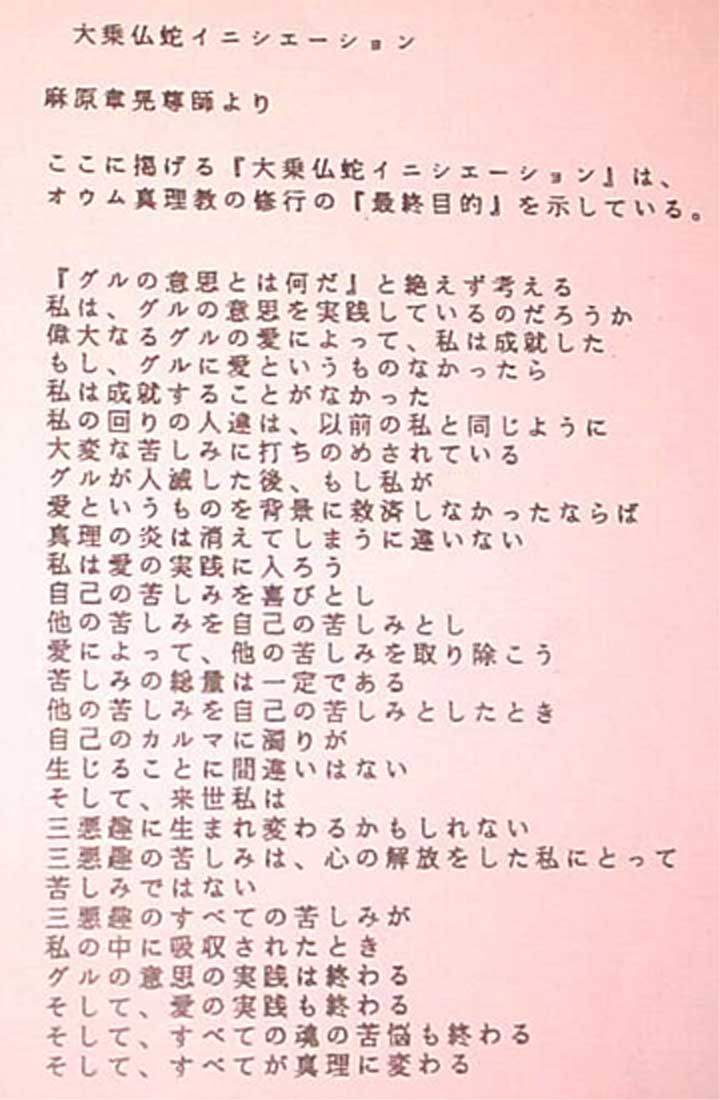 大乗仏蛇イニシエーション
麻原章晃尊師より
ここに掲げる『大乗仏蛇イニシエーション』は、
オウム真理教の修行の『最終目的』を示している。
『グルの意思とは何だ』と絶えず考える
私は、グルの意思を実践しているのだろうか
偉大なるグルの愛によって、私は成就した
もし、グルに愛というものなかったら
私は成就することがなかった
私の回りの人達は、以前の私と同じように
大変な苦しみに打ちのめされている
グルが入滅した後、もし私が
愛というものを背景に救済しなかったならば
真理の炎は消えてしまうに違いない
私は愛の実践に入ろう
自己の苦しみを喜びとし
他の苦しみを自己の苦しみとし
愛によって、他の苦しみを取り除こう
苦しみの総量は一定である
他の苦しみを自己の苦しみとしたとき
自己のカルマに濁りが
生じることに間違いはない
そして、来世私は
三悪趣に生まれ変わるかもしれない
三悪趣の苦しみは、心の解放をした私にとって
苦しみではない
三悪趣のすべての苦しみが
私の中に吸収されたとき
グルの意思の実践は終わる
そして、愛の実践も終わる
そして、すべての魂の苦悩も終わる
そして、すべてが真理に変わる